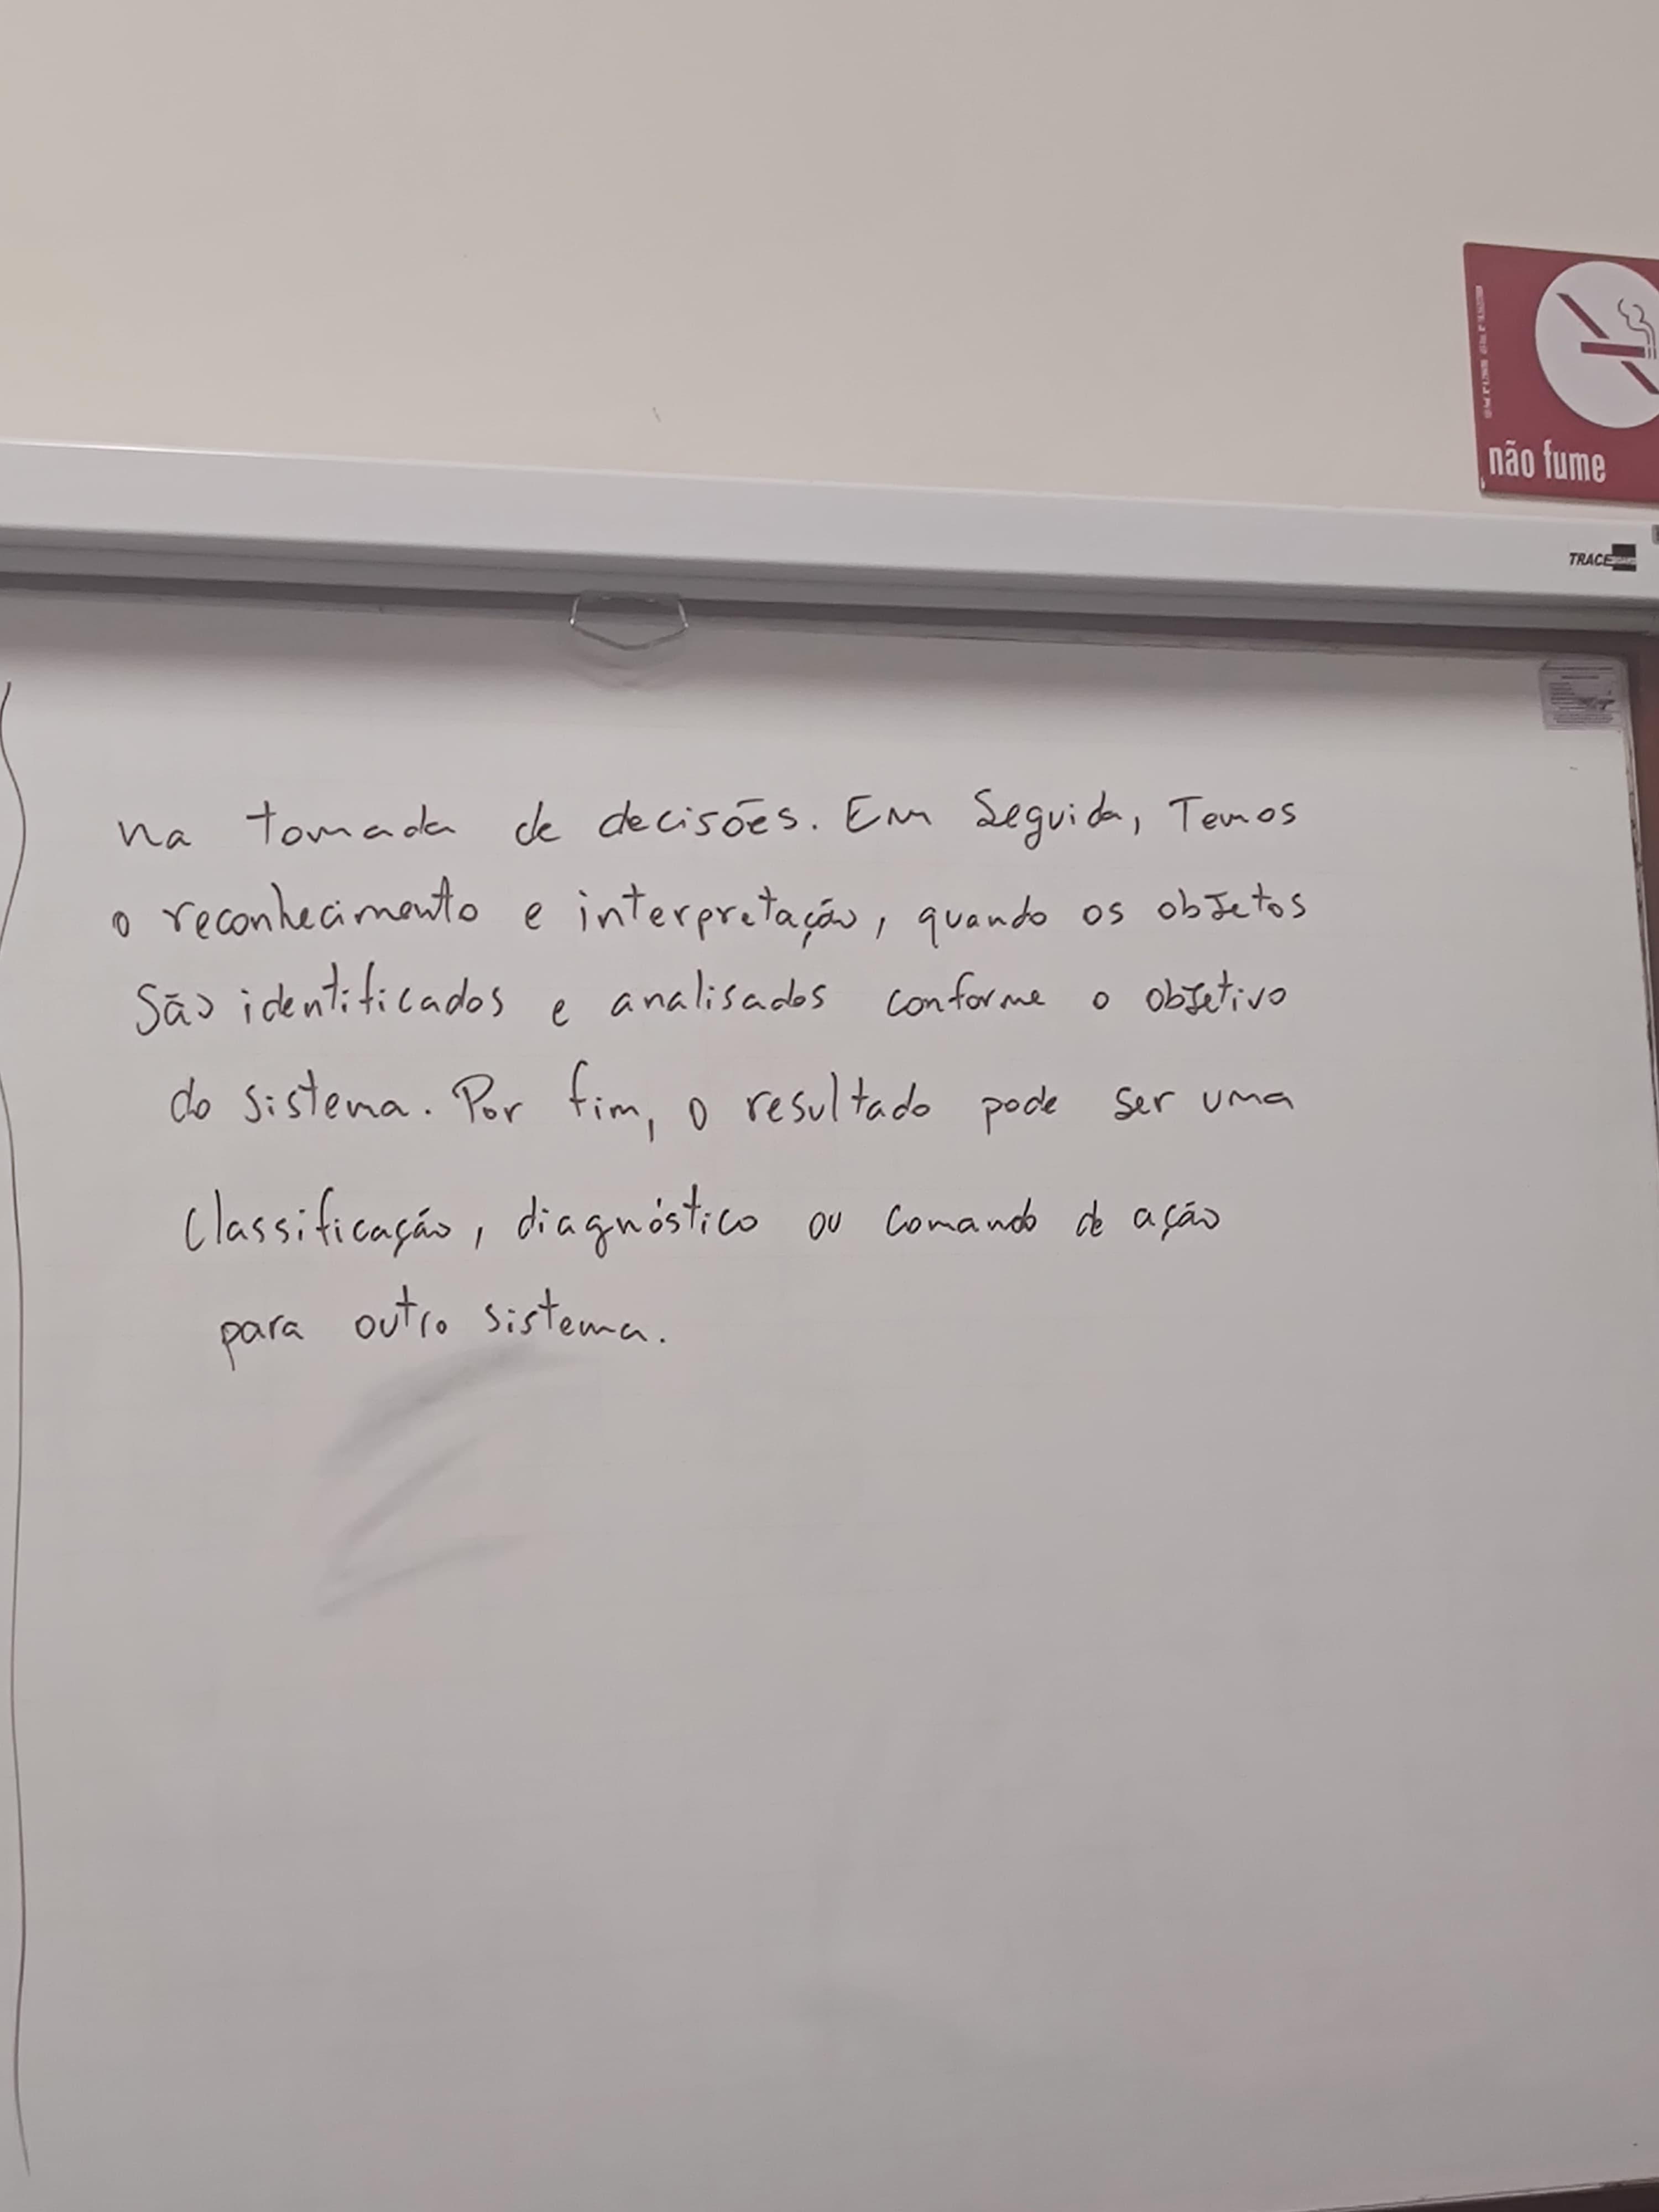 não fume
TRACE
na tomada de decisões. Em Seguida, Temos
o reconhecimento e interpretação, quando os objetos
São identificados e analisados conforme o objetivo
do sistema. Por fim, o resultado pode ser uma
Classificação, diagnóstico ou comando de ação
para outro sistema.